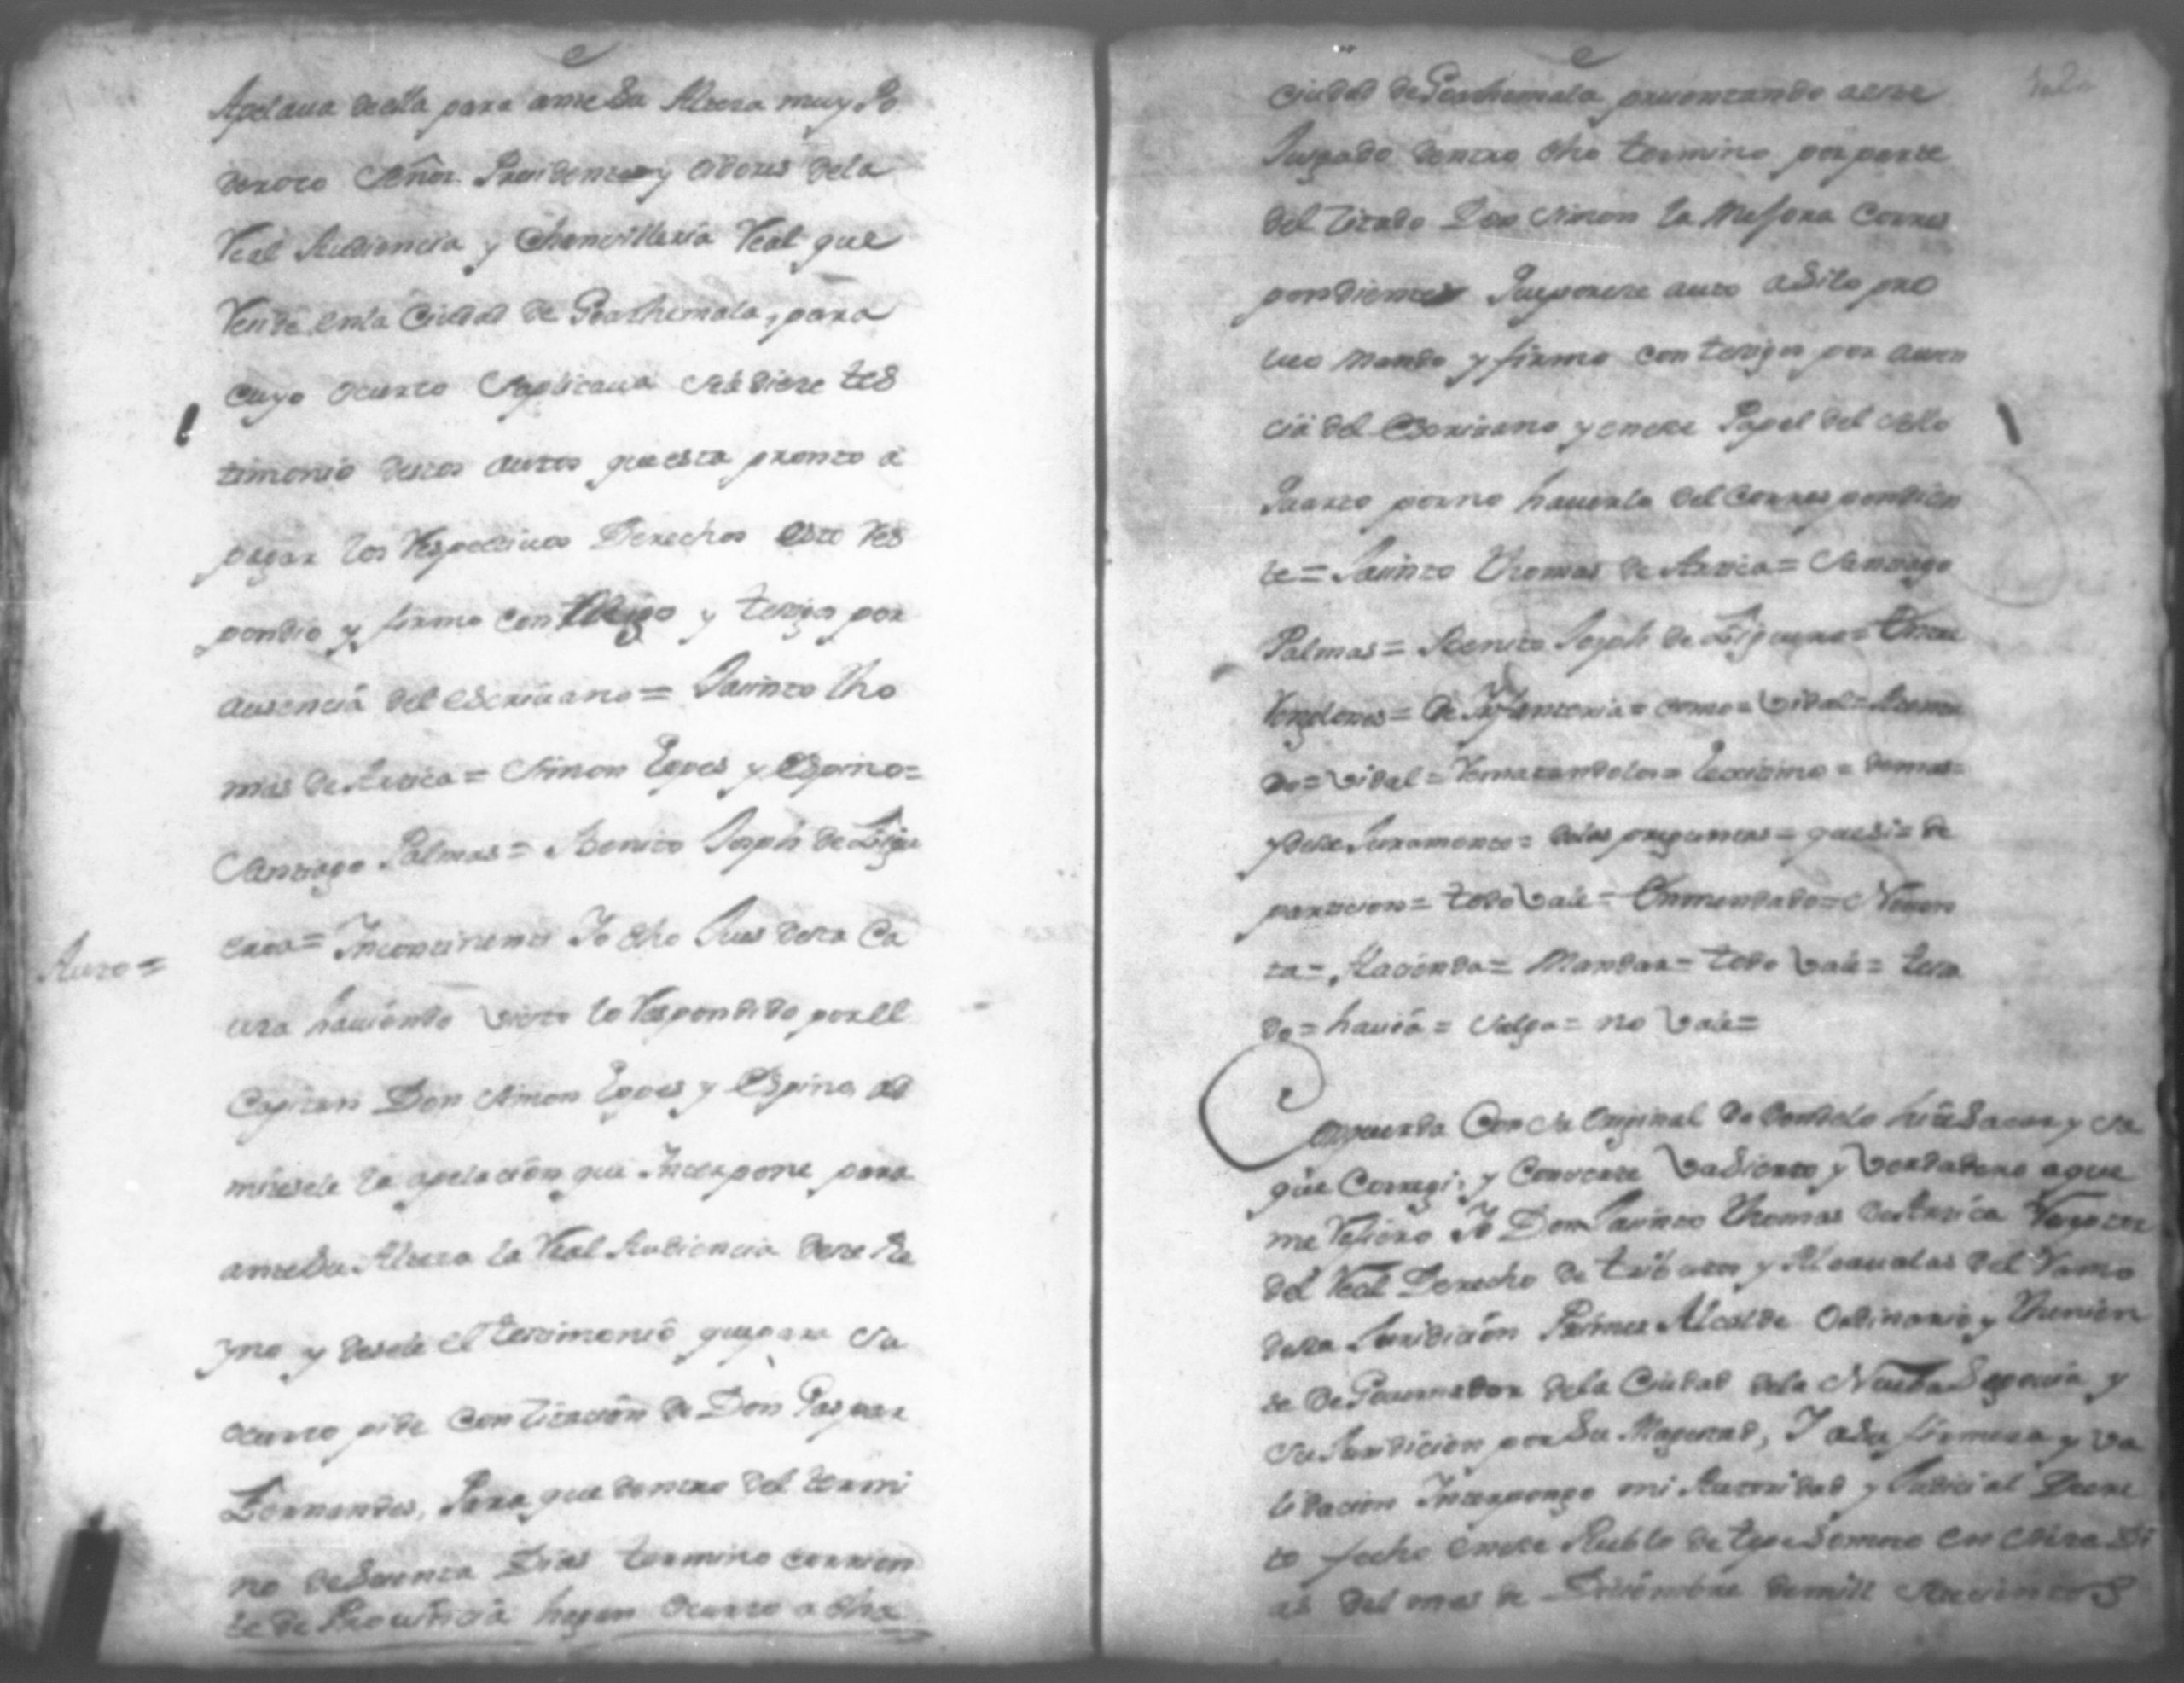 Apelaua de ella para ante Su Alteza muy Po
deroso Señor Precidente y oidores de la
Real Audiencia y Chancilleria Real que
Recide en la Ciudad de Goathemala, para
cuyo ocurso Suplicaua Se le diese tes
timonio destos autos que esta pronto a
pagar los Respectiuos Derechos esto Res
pondio y firmo con migo y testigos por
ausencia del escriuano = Jacinto Tho
mas de Arsica = Simon Lopes y Espino =
Santiago Palmas = Benito Joseph de Figu
eroa = Incontinenti Yo dho Jues desta Ca
Auto =
usa hauiendo visto lo Respondido por el
Capitan Don Simon Lopes y Espino, ad
mitesele la apelacion que Interpone para
ante Su Alteza la Real Audiencia deste Re
yno y desele el testimonio que para su
ocurso pide con citacion de Don Gaspar
Fernandes, Para que dentro del termi
no de Sesenta Dias termino corrien
te de Prouincia hagan Ocurso a dha
Ciudad de Goathemala precentando a este
Jusgado dentro dho termino por parte
del citado Don Simon la Mejora Corres
pondiente Por este auto asi lo pro
ueo mando y firmo con testigos por ausen
cia del Escriuano y en este Papel del Sello
Quarto por no hauerlo del Correspondien
te = Jacinto Thomas de Arsica = Santiago
Palmas = Benito Joseph de Figueroa = Entre
Renglones = = como = vidal =
do = vidal = Rematandolos = = demas =
y deste Juramento = de las preguntas = que si = de
particion = todo Vale = Enmendado =
ta = Hacienda = Mandar = todo Vale = testa
do = hauia = Salga = no Vale =
Concuerda Con su Original de donde lo hise Sacar y Sa
que Corregi y Concerte Va Sierto y Verdadero a que
me Refiero Yo Don Jacinto Thomas de Arsica Reseptor
del Real Derecho de tributos y Alcaualas del Ramo
desta Juridicion Primer Alcalde Ordinario y Thenien
te de Gouernador dela Ciudad dela Nueba Segouia y
Su Juridicion por Su Magestad, Y a Su firmesa y va
lidacion Interpongo mi Autoridad y Judicial Decre
to fecho en este Pueblo de tepeSomoto en Dies di
as del mes de Disiembre de mill Setecientos